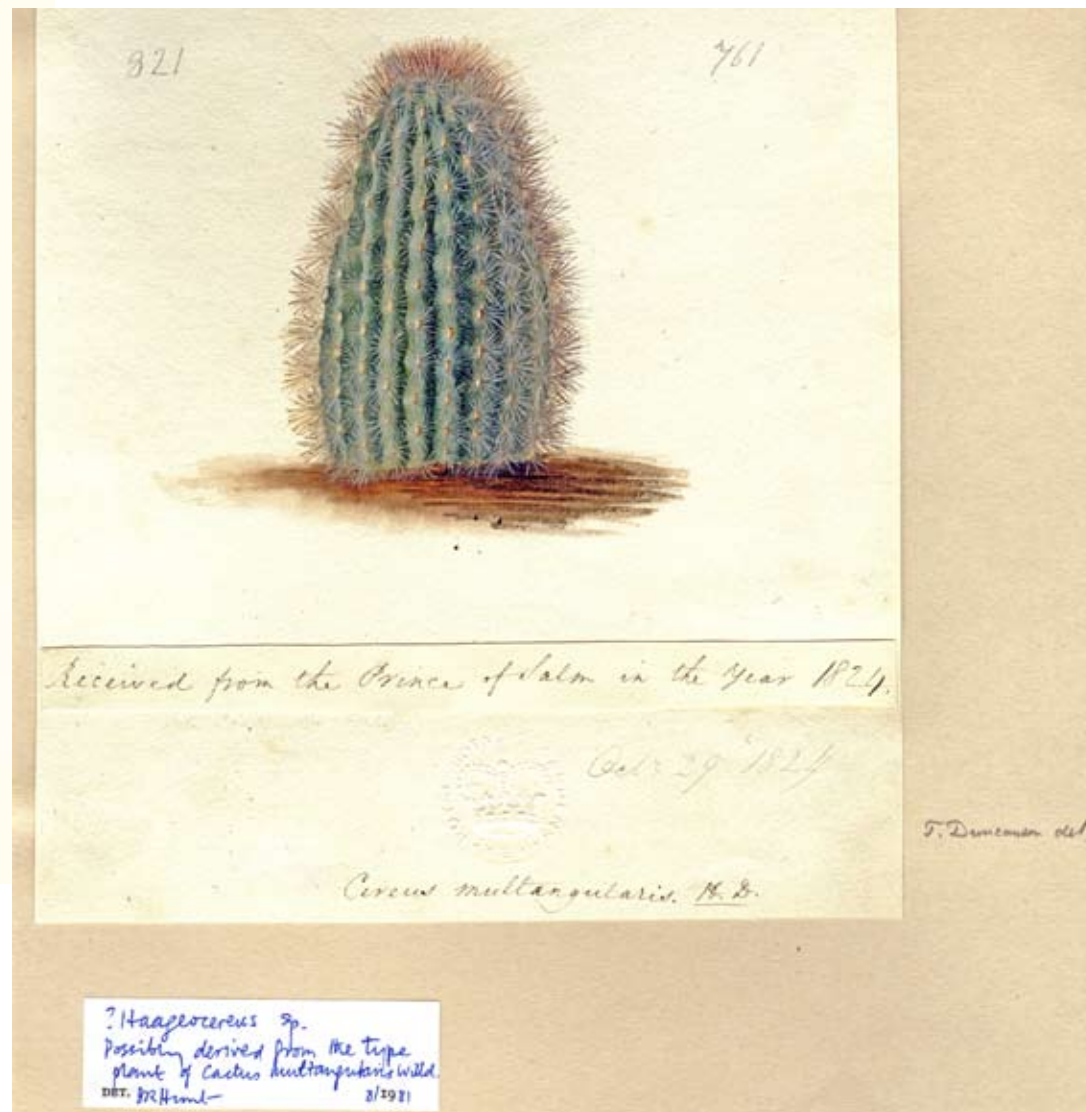 821
761
Received from the Prince of Salm in the Year 1824.
Octr 29 1824
T. Duncanson del
Cereus multangularis. H. D.
? Haageocereus sp.
Possibly derived from the type
plant of Cactus multangularis Willd.
DET. DR Hunt 8/1981